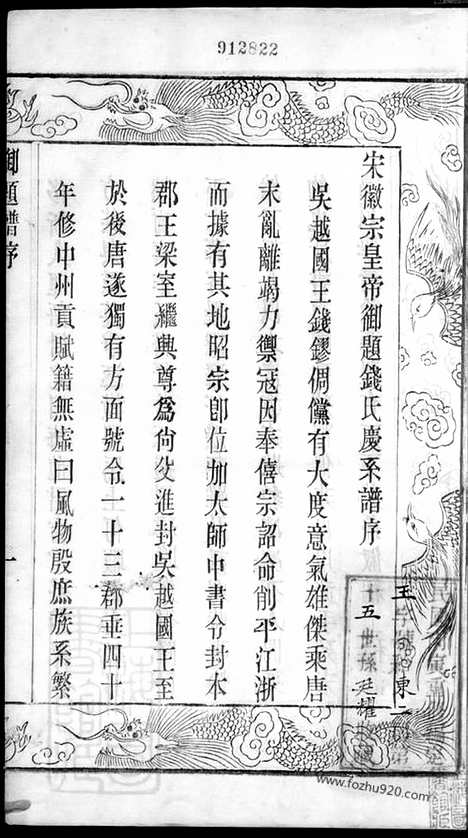 912822
宋徽宗皇帝御題錢氏慶系譜序
吳越國王錢鏐倜儻有大度意氣雄傑乘唐
末亂離竭力禦寇因奉僖宗詔命削平江浙
而據有其地昭宗卽位加太師中書令封本
郡王梁室繼興尊為尙父進封吳越國王至
於後唐遂獨有方面號令一十三郡垂四十
年修中州貢賦籍無虛日風物殷庶族系繁
御題譜序
一
十五世孫
www.fozhu920.com